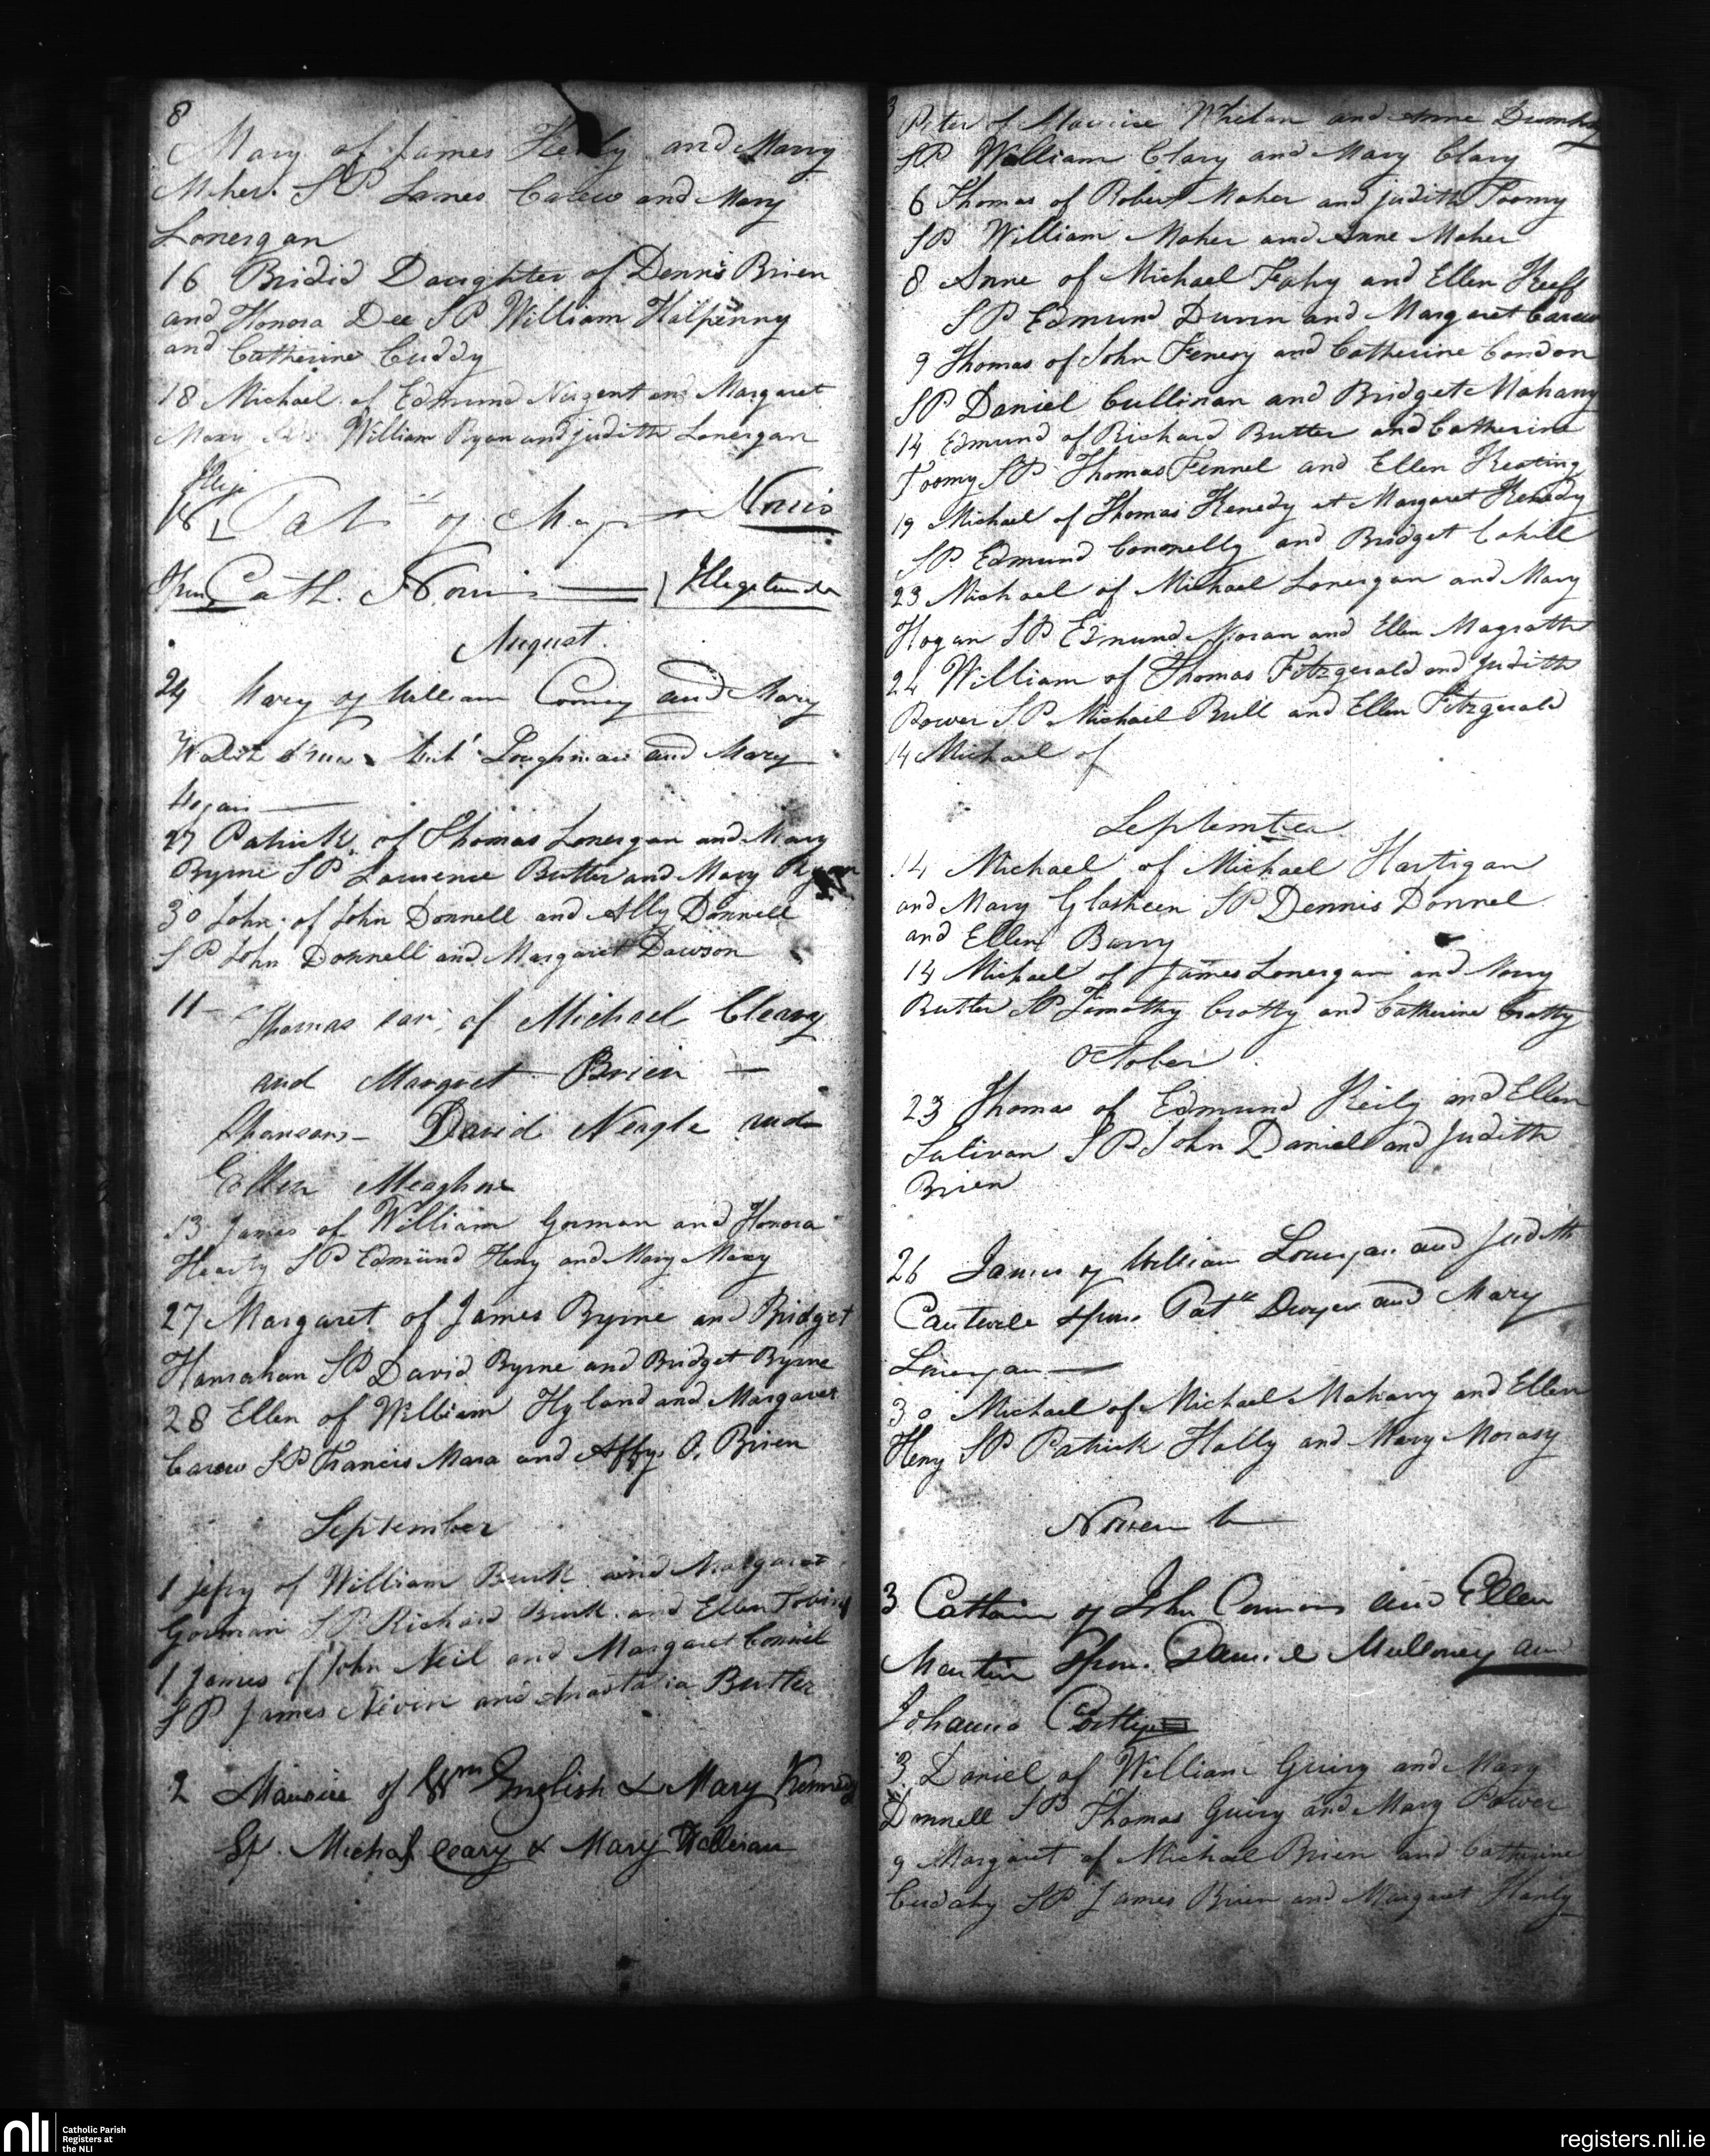 8
Mary of James Healy and Mary
Meher SP James Carew and Mary
Lonergan
16 Bridid Daughter of Dennis Brien
and Honora Dee SP William Halpenny
and Catherine Cuddy
18 Michael of Edmund Nugent and Margaret
Maxy William Ryan and judith Lonergan
Illegi
18 Pat of Norris
Spon Cath. Norris Illegitimate
August
24 Mary of William and Mary
Walsh Loughman and Mary
Hogan
27 Patrick of Thomas Lonergan and Mary
Byrne SP Laurence Butler and Mary Ryan
30 John of John Donnell and Ally Donnell
SP John Donnell and Margaret Dawson
11 Thomas of Michael Cleary
and Margret Brien
David Neagle and
Ellen Meagher
13 James of William Gorman and Honora
Hearty SP Edmund Heny and Mary Maxy
27 Margaret of James Byrne and Bridget
Hanrahan SP David Byrne and Bridget Byrne
28 Ellen of William Hyland and Margaret
Carew SP Francis Mara and Affy O. Brien
September
1 jefry of William Burk and Margaret
Gorman SP Richard Burk and Ellen Tobin
1 James of John Neil and Margaret Connel
SP James Nevin and Anastatia Butler
2 Maurice of Wm English & Mary Kennedy
Sp. Michal Cleary & Mary
3 Peter of Maurice Whelan and Anne
SP William Clary and Mary Clary
6 Thomas of Robert Maher and judith Toomy
SP William Maher and Anne Maher
8 Anne of Michael Fahy and Ellen Keeff
SP Edmund Dunn and Margaret Carew
9 Thomas of John Fenesy and Catherine Condon
SP Daniel Cullinan and Bridget Mahany
14 Edmund of Richard Butler and Catherine
Toomy SP Thomas Fennel and Ellen Keating
19 Michael of Thomas Kenedy et Margaret Kenedy
SP Edmund Connelly and Bridget Cahill
23 Michael of Michael Lonergan and Mary
Hogan SP Edmund Moran and Ellen Magrath
24 William of Thomas Fitzgerald and judith
Power SP Michael Bull and Ellen Fitzgerald
14 Michael of
September
14 Michael of Michael Hartigan
and Mary Glasheen SP Dennis Donnel
and Ellen Barry
14 Michael of James Lonergan and Mary
Butler SP Timothy Crotty and Catherine Crotty
October
23 Thomas of Edmund Keily and Ellen
Sulivan SP John Daniel and Judith
Brien
26 James of William Lonergan and Judith
Cantwell Spon. Patk Dwyer and Mary
Lonergan
30 Michael of Michael Maharry and Ellen
Heny SP Patrick Hally and Mary Morasy
Novemb
3 of John Connors and Ellen
Martin Spon. Daniel Mulloney and
Johanna
3 Daniel of William Guiry and Mary
Donnell SP Thomas Guiry and Mary Power
9 Margaret of Michael Brien and Catherine
Cudahy SP James Brien and Margaret Hanly
nli
Catholic Parish
Registers at
the NLI
registers.nli.ie